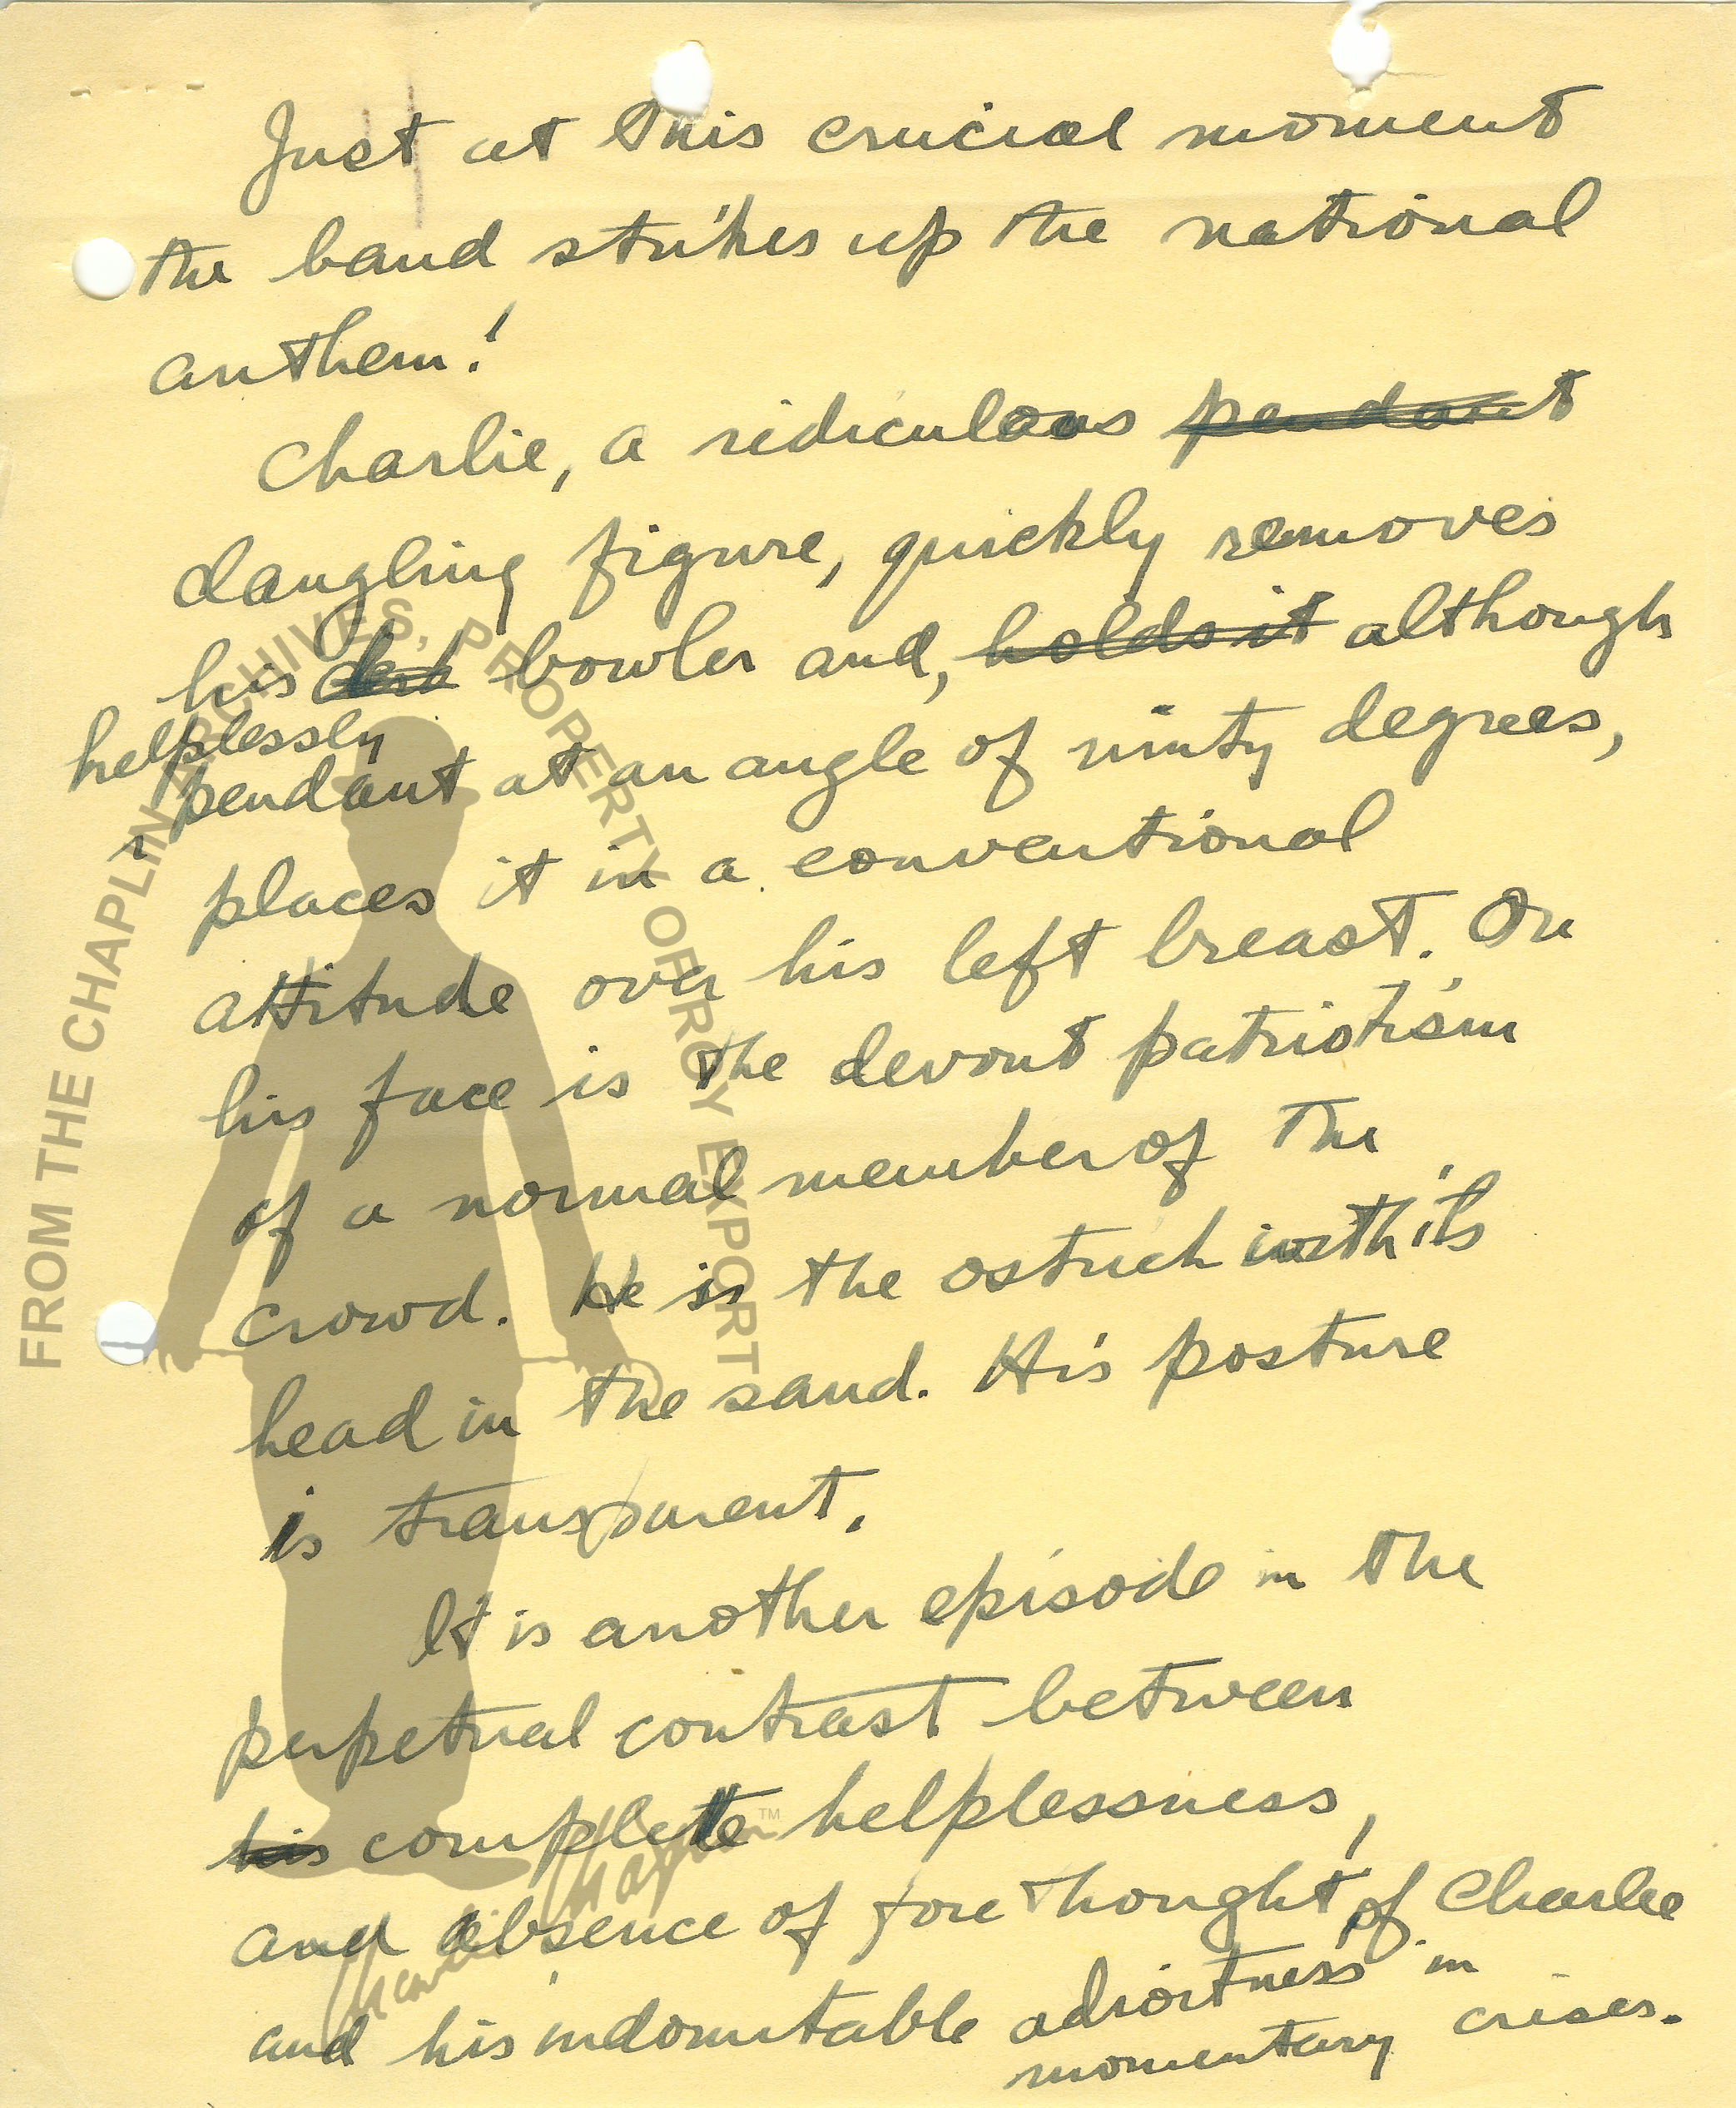 Just at this crucial moment
the band strikes up the national
anthem!
Charlie, a ridiculous pendant
dangling figure, quickly removes
his bowler and, holds it although
helplessly
pendant at an angle of ninty degrees,
places it in a conventional
attitude over his left breast. On
his face is the devout patriotism
of a normal member of the
crowd. He is the ostrich with its
head in the sand. His posture
is transparent.
It is another episode in the
perpetual contrast between
his complete helplessness,
and absence of fore thought of Charlie
and his indomitable adroitness in
momentary crises.
FROM THE CHAPLIN ARCHIVES, PROPERTY OF ROY EXPORT
Charlie Chaplin™